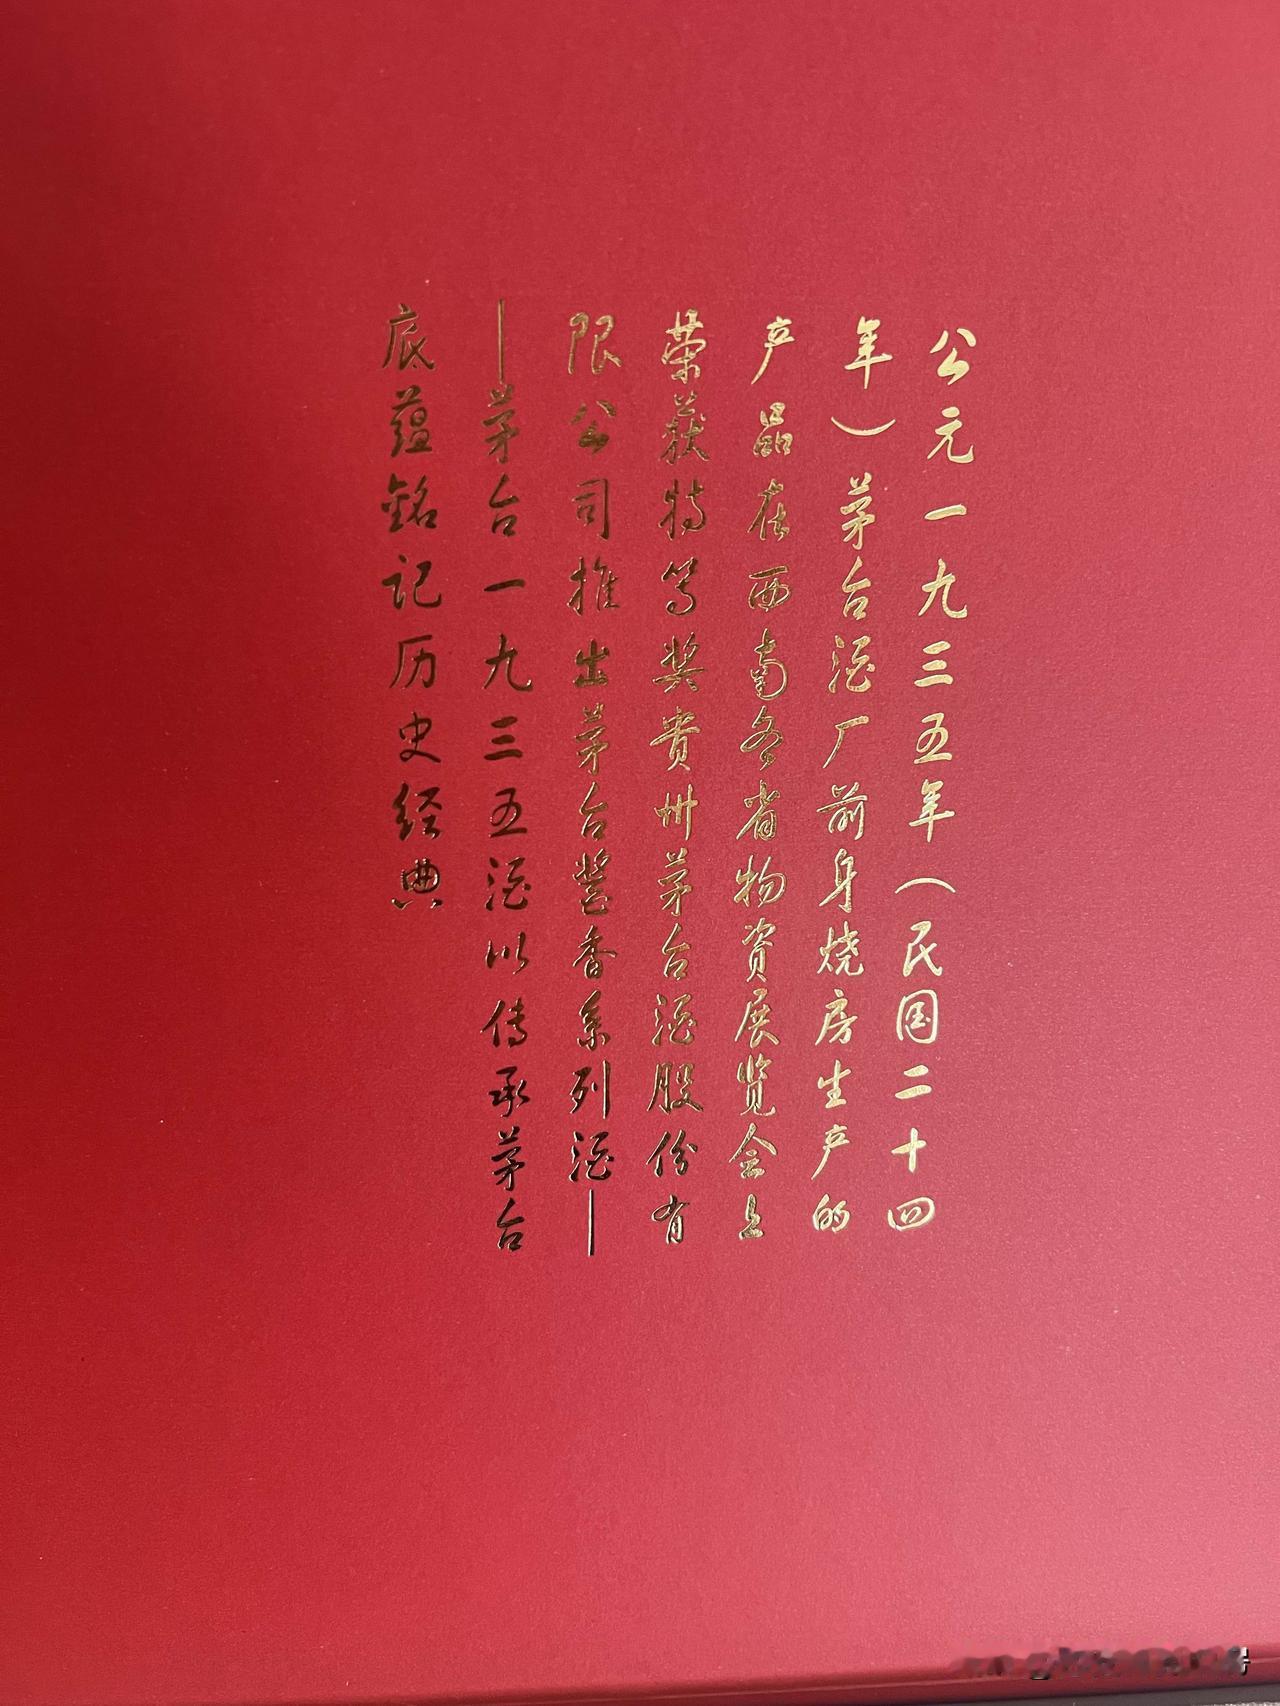 公元一九三五年（民国二十四
年）茅台酒厂前身烧房生产的
产品在西南各省物资展览会上
荣获特等奖贵州茅台酒股份有
限公司推出茅台酱香系列酒—
—茅台一九三五酒以传承茅台
底蕴铭记历史经典